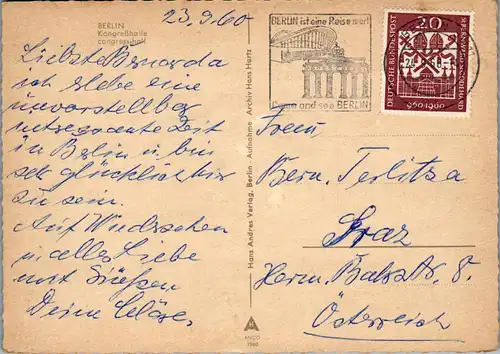 BERLIN
Kongreßhalle
congress-hall
23.9.60
Liebste Bernarda
ich erlebe eine
unvorstellbar
interessante Zeit
in Berlin u. bin
sehr glücklich hier
zu sein.
Auf Wiedersehen
in aller Liebe
mit Grüßen
Deine
Hans Andres Verlag, Berlin - Aufnahme Archiv Hans Hartz
ANDO
1960
BERLIN ist eine Reise wert
Come and see BERLIN
DEUTSCHE BUNDESPOST
20
960-1960
Frau
Bern. Terlitza
Graz
Herm. Bahr Str. 8.
Österreich